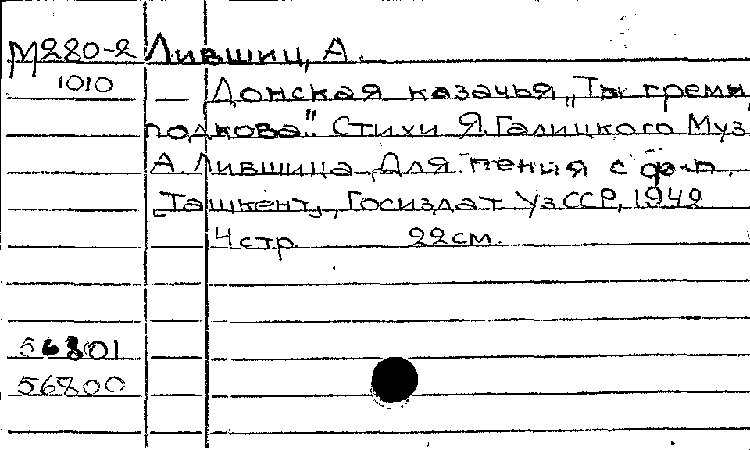 М280-2 Лившиц, А.
1010 — Донская казачья „Ты греми
подкова". Стихи Я. Галицкого Муз
А. Лившица Для пения с ф-п.
[Ташкент], Госиздат УзССР, 1942
4 стр. 22 см.
56801
56800